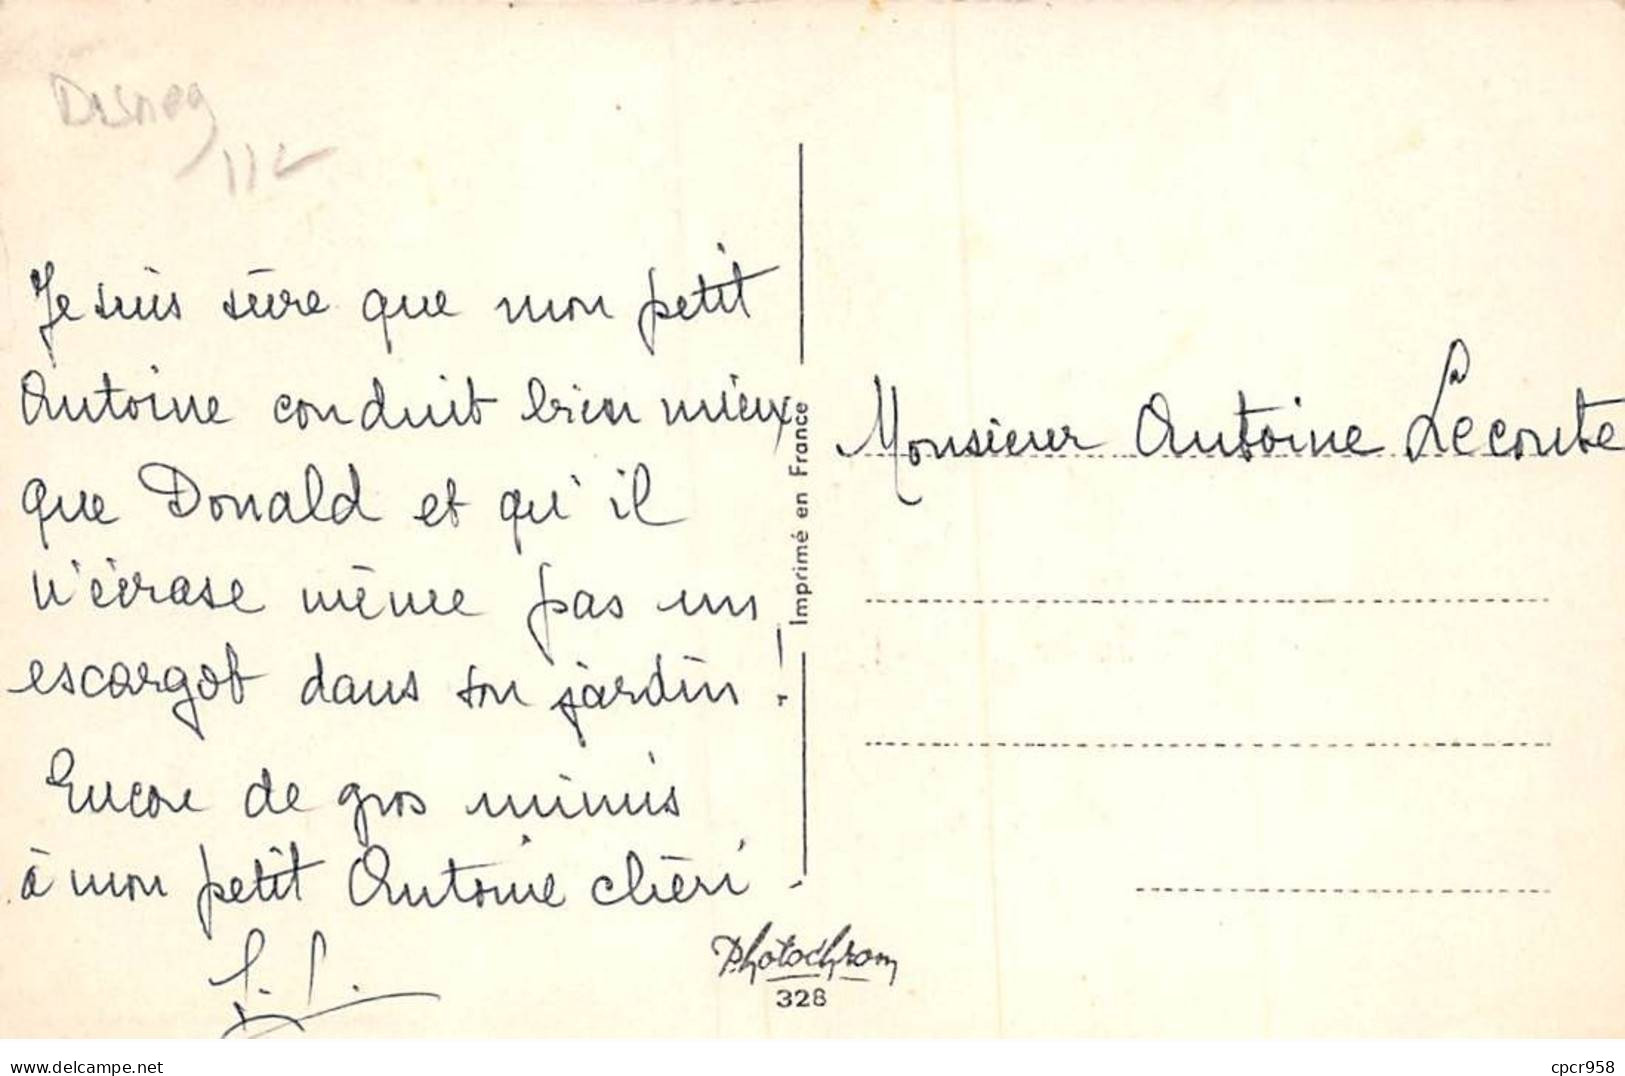 Disney
112
Je suis sûre que mon petit
Antoine conduit bien mieux
que Donald et qu'il
n'écrase même pas un
escargot dans son jardin !
Encore de gros mimis
à mon petit Antoine chéri.
Imprimé en France
Monsieur Antoine Lecomte
Photochrom
328
delcampe.net
cpcr958